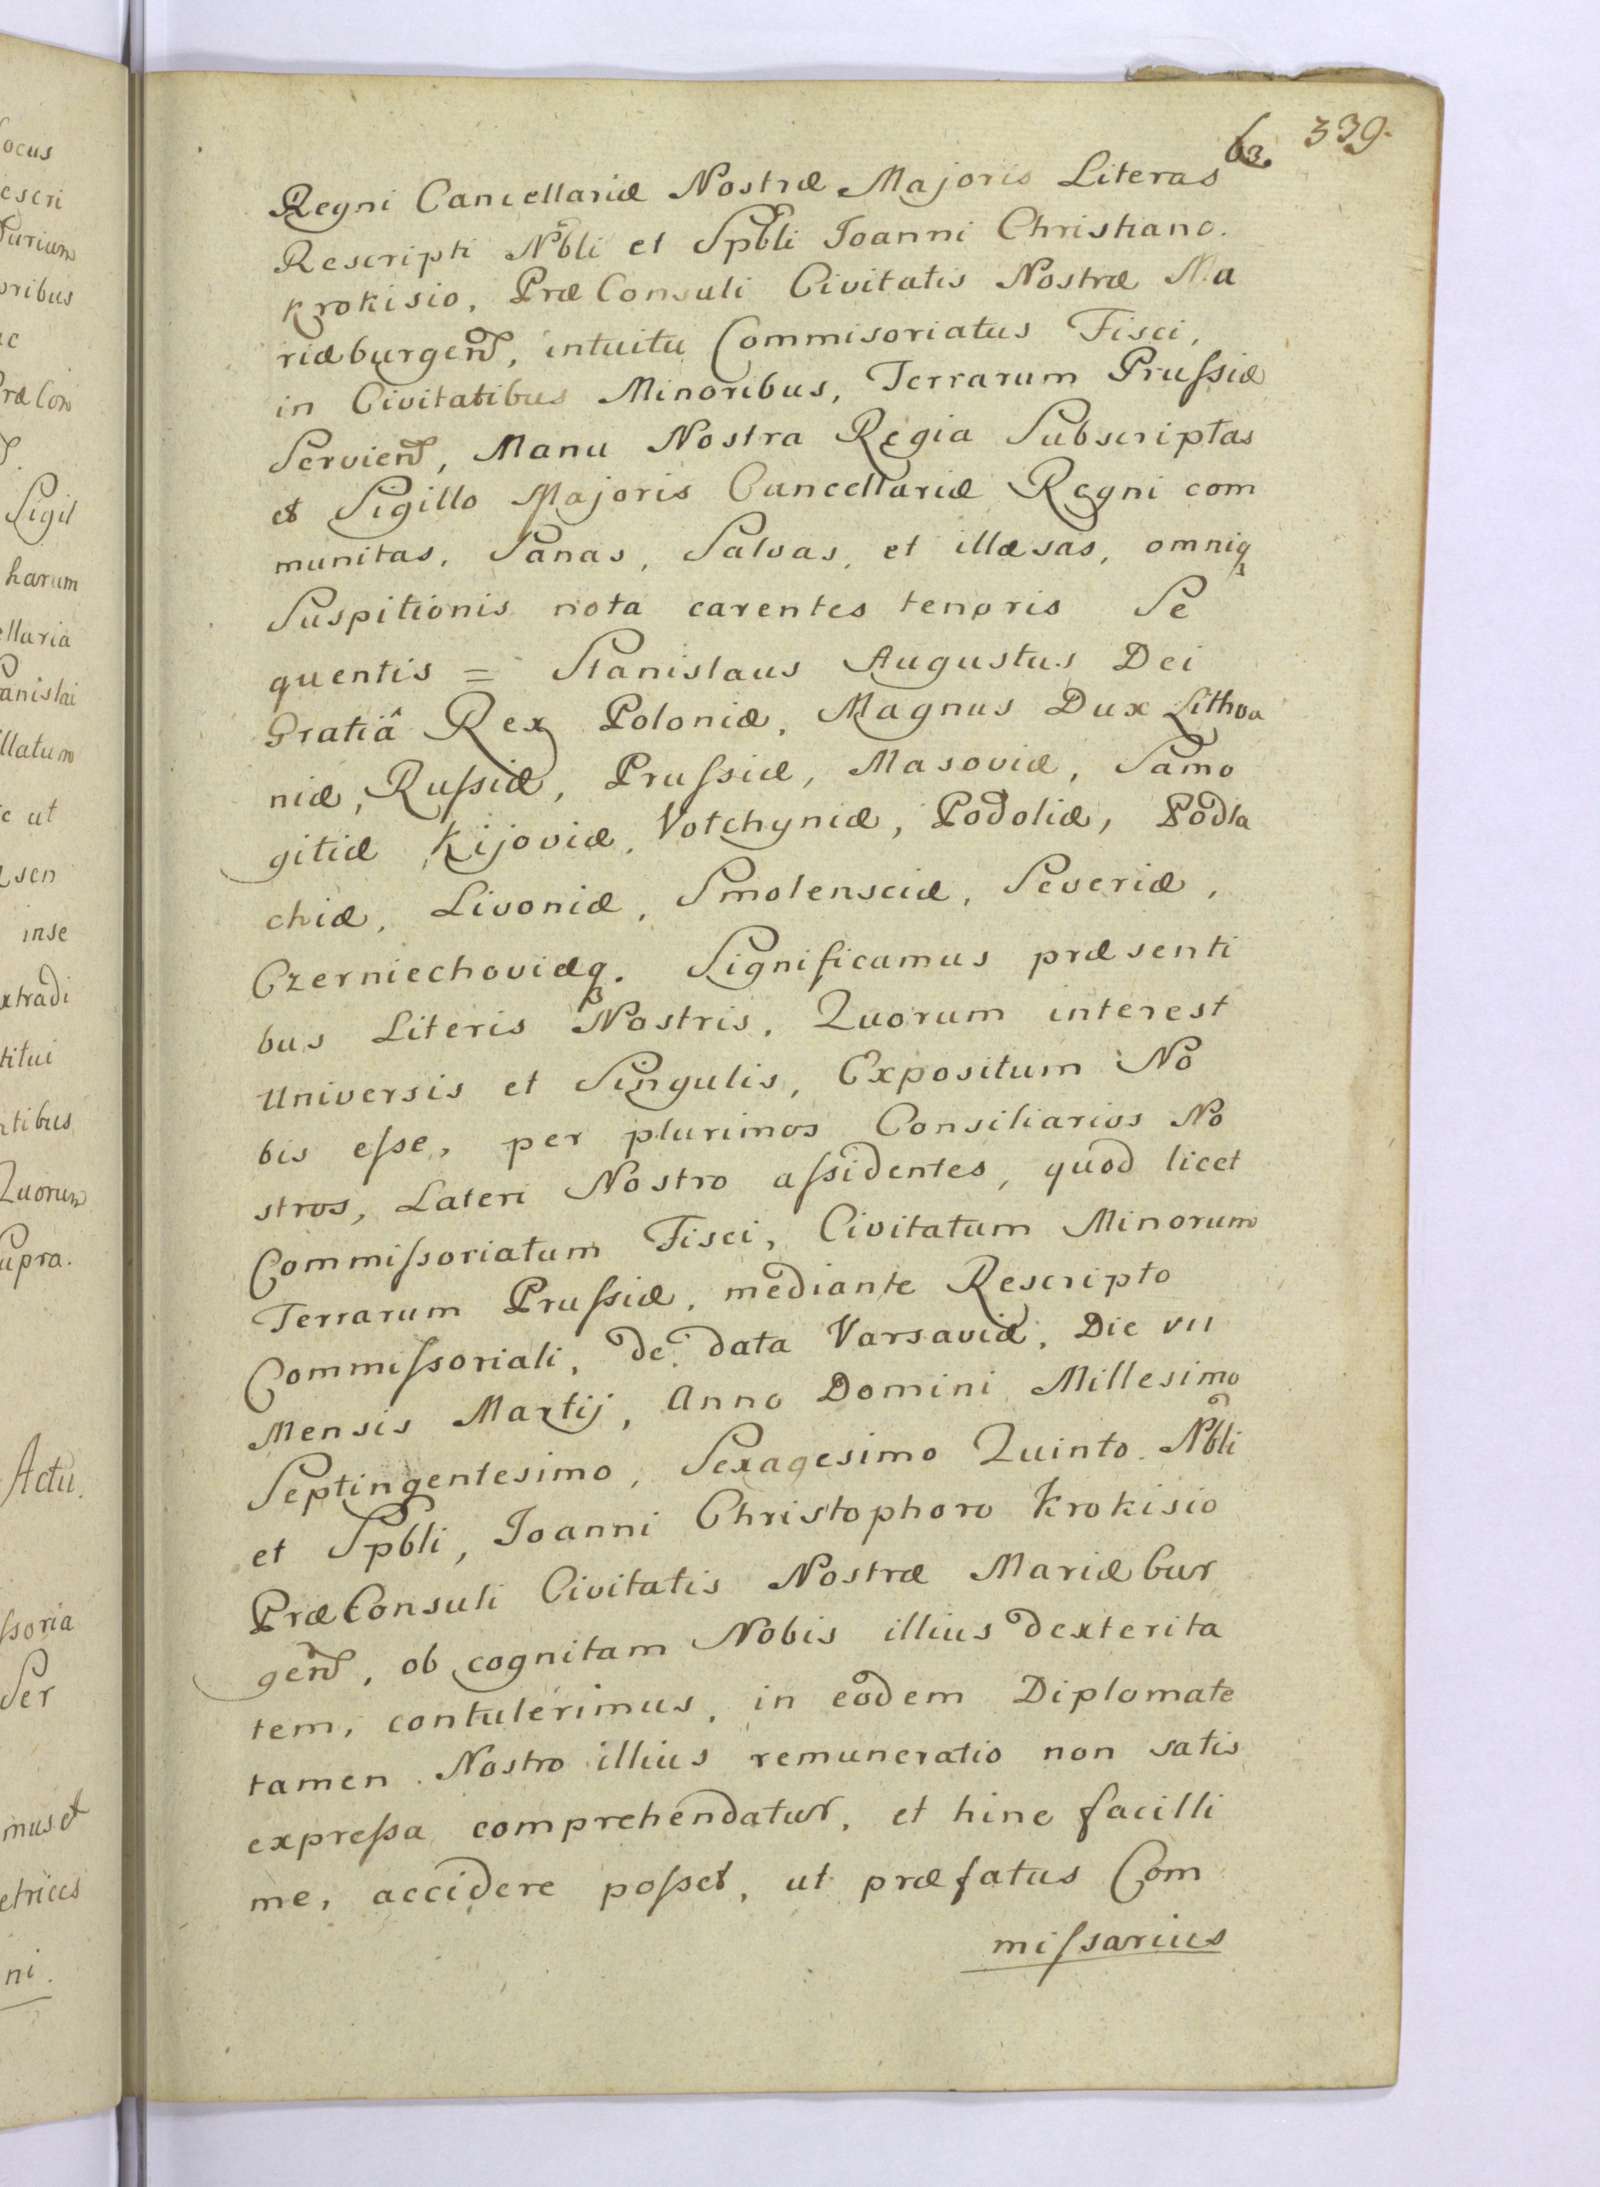 63. 339.
Regni Cancellariæ Nostræ Majoris Literas
Rescripti Nbli et Spbli Joanni Christiano.
Krokisio, PræConsuli Civitatis Nostræ Ma
riæburgens, intuitu Commisoriatus Fisci,
in Civitatibus Minoribus, Terrarum Pruſsiæ
Serviens, Manu Nostra Regia Subscriptas
et Sigillo Majoris Cancellariæ Regni com
munitas, Sanas, Salvas, et illæsas, omniq
Suspitionis nota carentes tenoris Se
quentis = Stanislaus Augustus Dei
Gratiâ Rex Poloniæ, Magnus Dux Lithva
niæ, Ruſsiæ, Pruſsiæ, Masoviæ, Samo
gitiæ Kijoviæ, Volchyniæ, Podoliæ, Podla
chiæ, Livoniæ, Smolensciæ, Severiæ,
Czerniechoviæq. Significamus præsenti
bus Literis Nostris, Quorum interest
Universis et Singulis, Expositum No
bis eſse, per plurimos Consiliarios No
stros, Lateri Nostro aſsidentes, quod licet
Commiſsoriatum Fisci, Civitatum Minorum
Terrarum Pruſsiæ, mediante Rescripto
Commiſsoriali, de data Varsaviæ, Die VII
Mensis Martij, Anno Domini Millesimo
Septingentesimo, Sexagesimo Quinto Nbli
et Spbli, Joanni Christophoro Krokisio
PræConsuli Civitatis Nostræ Mariæbur
gens, ob cognitam Nobis illius dexterita
tem, contulerimus, in eodem Diplomate
tamen Nostro illius remuneratio non satis
expreſsa comprehendatur, et hinc facilli
me, accidere poſset, ut præfatus Com
miſsarius
ocus
escri
urium
oribus
ac
ræCon
Sigil
harum
ellaria
anislai
llatum
c ut
sen
inse
xtradi
titui
ntibus
Quorum
upra.
Actu.
ſsoria
Ser
mus et
etrices
ni.